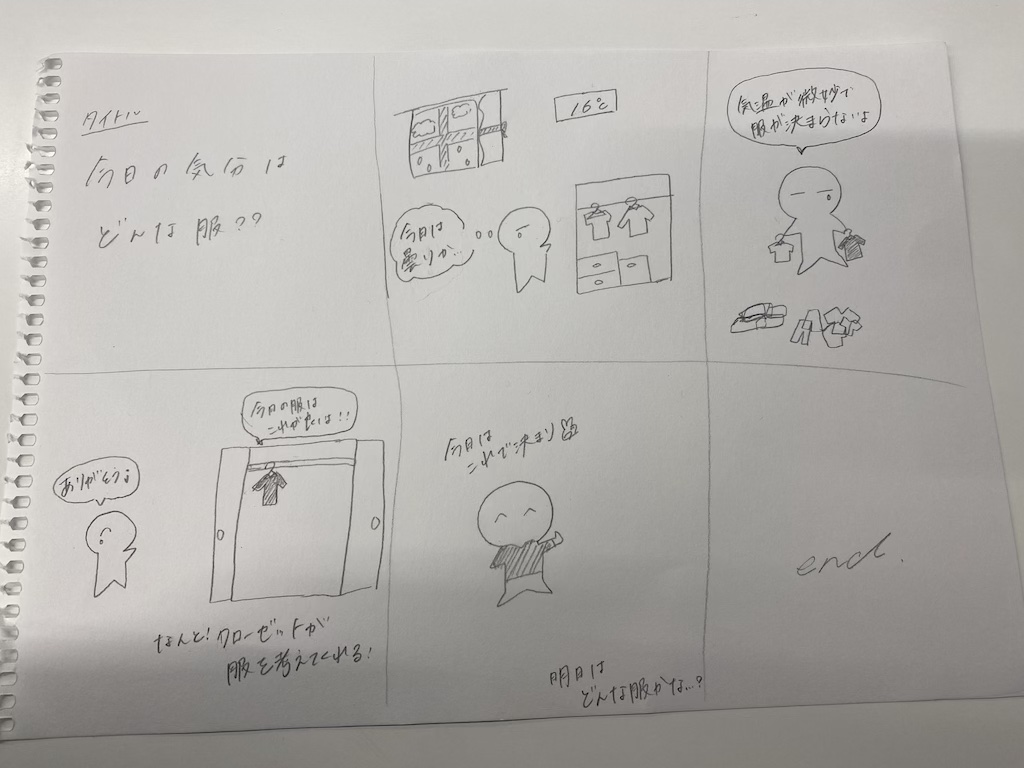 タイトル
今日の気分は
どんな服??
16℃
今日は
曇りか..
気温が微妙で
服が決まらないよ
今日の服は
これが良いよ!!
ありがとうよ
なんと!クローゼットが
服を考えてくれる!
今日は
これで決まり
明日は
どんな服かな...?
end.